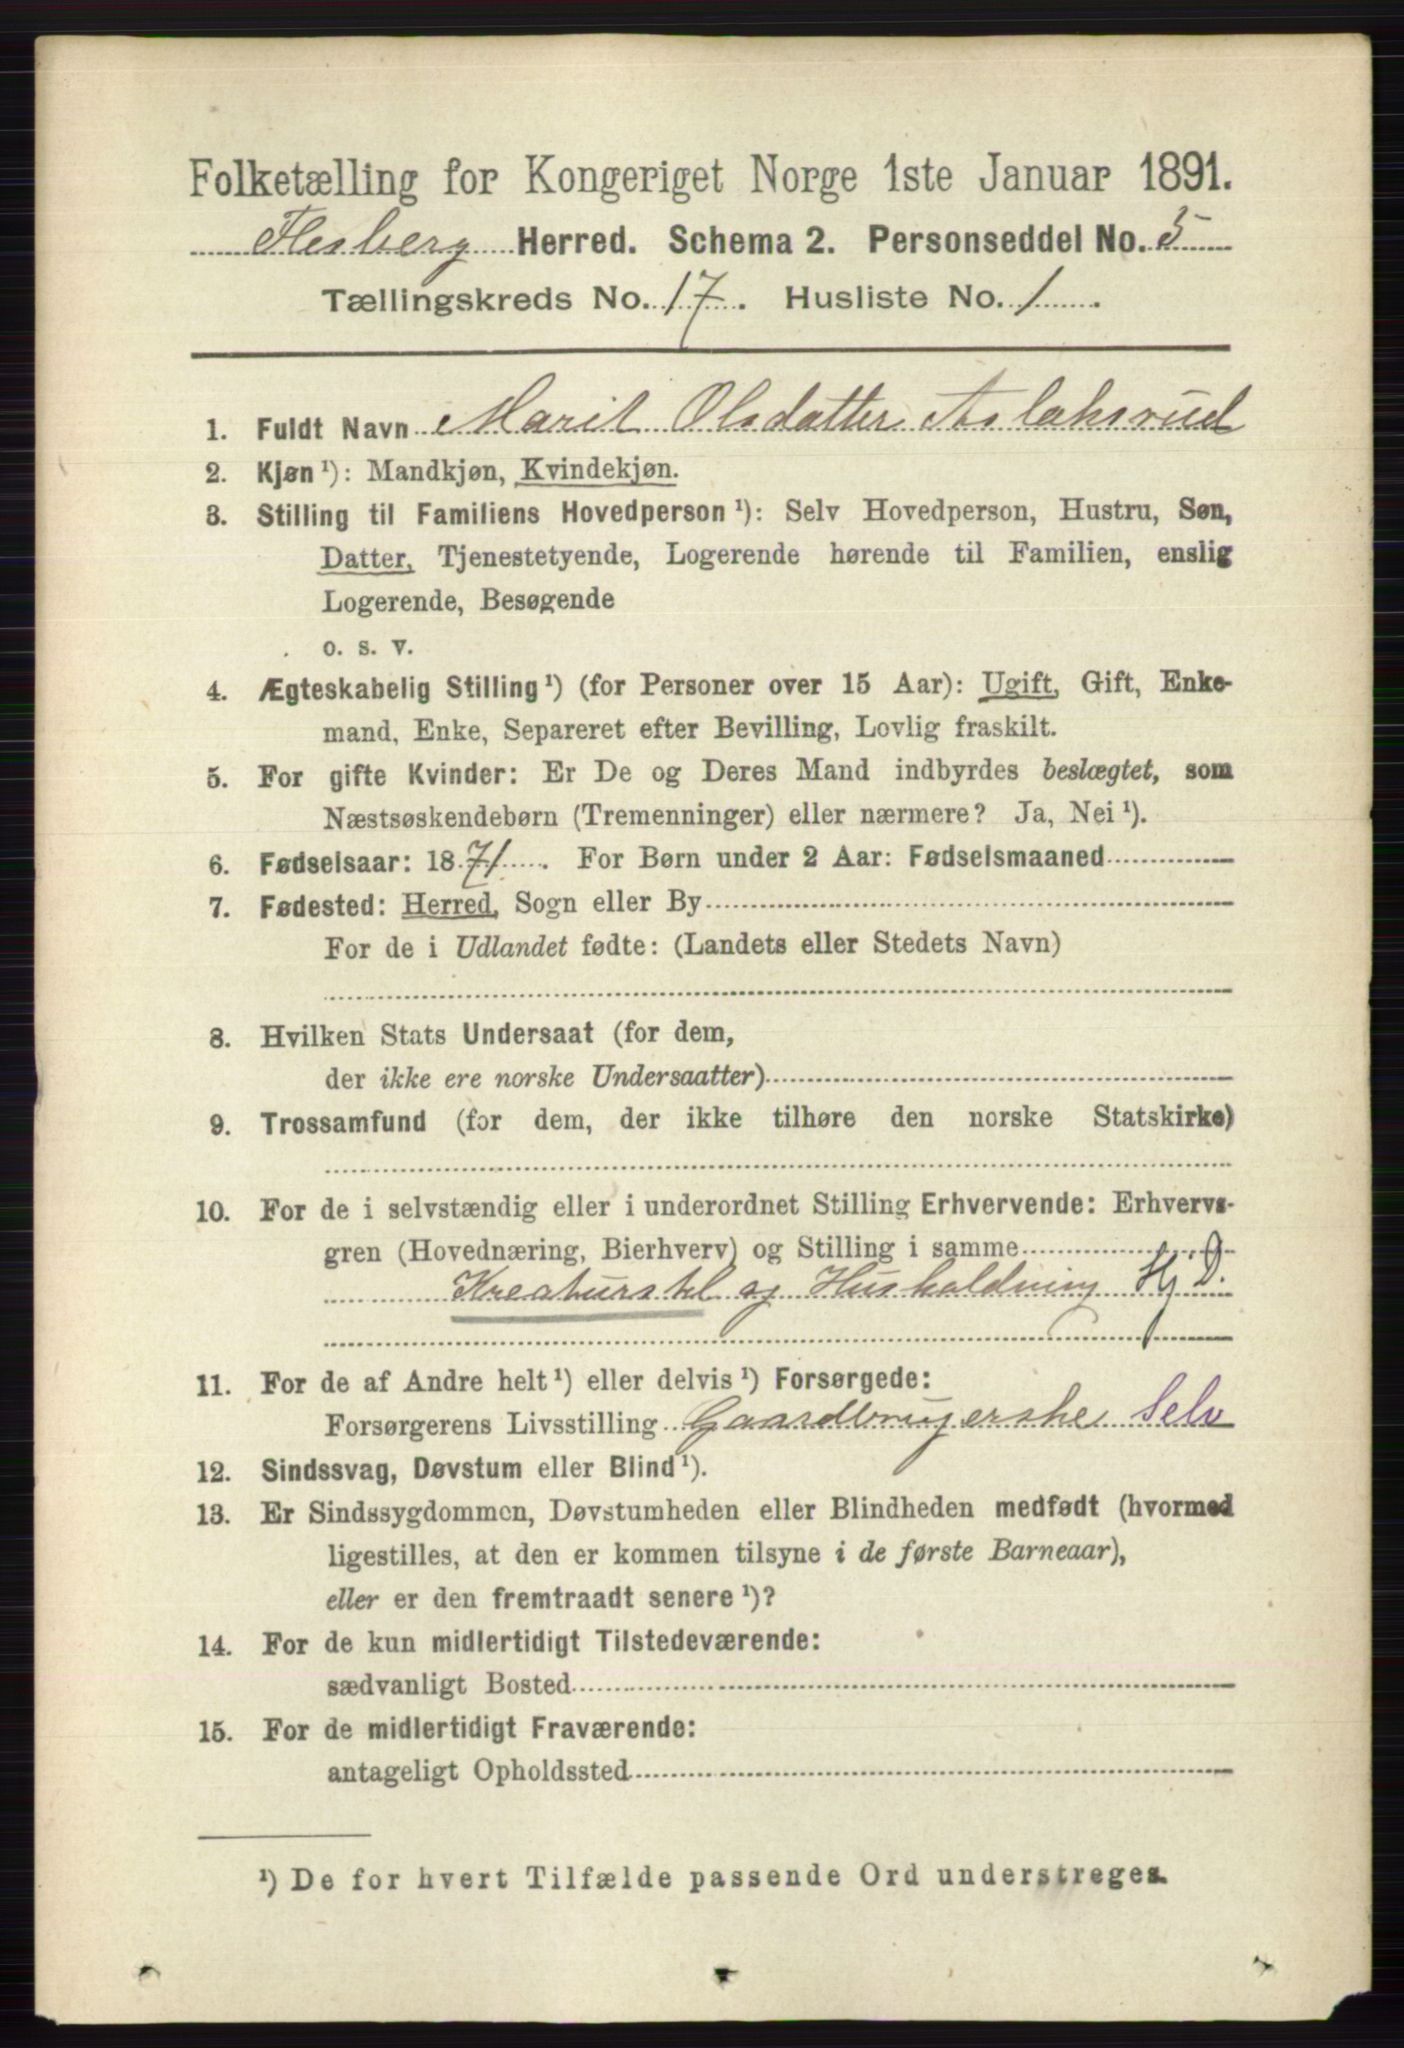 Folketælling for Kongeriget Norge 1ste Januar 1891.
Flesberg Herred. Schema 2. Personseddel No. 5
Tællingskreds No. 17. Husliste No. 1.
1. Fuldt Navn Marit Olsdatter Aslaksrud
2. Kjøn ¹): Mandkjøn, Kvindekjøn.
3. Stilling til Familiens Hovedperson ¹): Selv Hovedperson, Hustru, Søn,
Datter, Tjenestetyende, Logerende hørende til Familien, enslig
Logerende, Besøgende
o. s. v.
4. Ægteskabelig Stilling ¹) (for Personer over 15 Aar): Ugift, Gift, Enke-
mand, Enke, Separeret efter Bevilling, Lovlig fraskilt.
5. For gifte Kvinder: Er De og Deres Mand indbyrdes beslægtet, som
Næstsøskendebørn (Tremenninger) eller nærmere? Ja, Nei ¹).
6. Fødselsaar: 1871. For Børn under 2 Aar: Fødselsmaaned
7. Fødested: Herred, Sogn eller By
For de i Udlandet fødte: (Landets eller Stedets Navn)
8. Hvilken Stats Undersaat (for dem,
der ikke ere norske Undersaatter)
9. Trossamfund (for dem, der ikke tilhøre den norske Statskirke)
10. For de i selvstændig eller i underordnet Stilling Erhvervende: Erhvervs-
gren (Hovednæring, Bierhverv) og Stilling i samme
Kreaturstel og Husholdning Hj D.
11. For de af Andre helt ¹) eller delvis ¹) Forsørgede:
Forsørgerens Livsstilling Gaardbrugerske Selv
12. Sindssvag, Døvstum eller Blind ¹).
13. Er Sindssygdommen, Døvstumheden eller Blindheden medfødt (hvormed
ligestilles, at den er kommen tilsyne i de første Barneaar),
eller er den fremtraadt senere ¹)?
14. For de kun midlertidigt Tilstedeværende:
sædvanligt Bosted
15. For de midlertidigt Fraværende:
antageligt Opholdssted
¹) De for hvert Tilfælde passende Ord understreges.